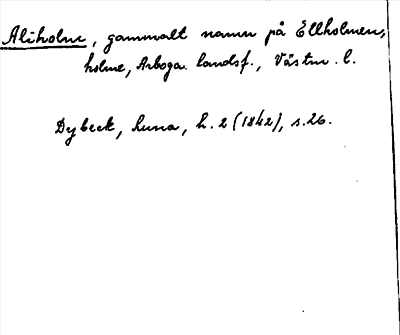 Aliholm, gammalt namn på Ellholmen,
holme, Arboga landsf., Västm. l.
Dybeck, Runa, h. 2 (1842), s. 26.